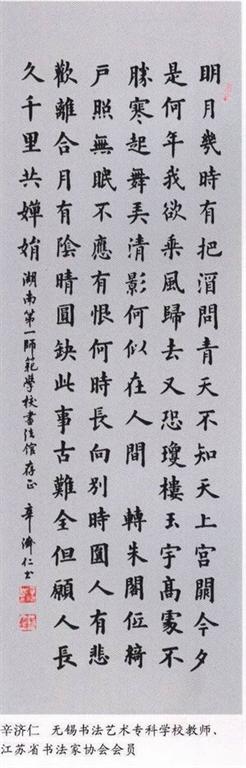 明月幾時有把酒問青天不知天上宮闕今夕
是何年我欲乘風歸去又恐瓊樓玉宇高處不
勝寒起舞弄清影何似在人間 轉朱閣低綺
戶照無眠不應有恨何時長向別時圓人有悲
歡離合月有陰晴圓缺此事古難全但願人長
久千里共嬋娟 湖南第一師範學校書法館存正 辛濟仁書
辛济仁 无锡书法艺术专科学校教师、
江苏省书法家协会会员